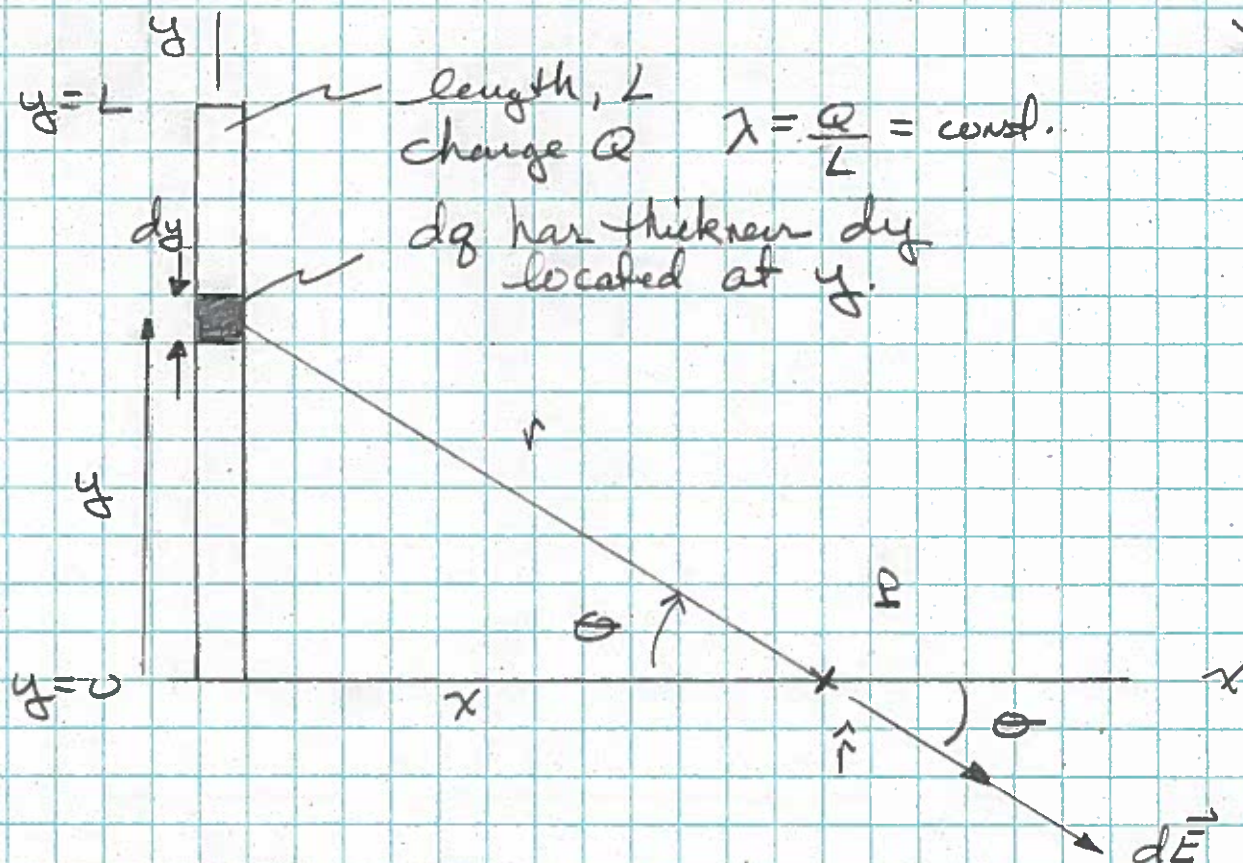 y
y = L
length, L
charge Q λ = Q/L = const.
dy
dq has thickness dy
located at y.
r
y
θ
P
y = 0
x
x
r̂
θ
dE⃗